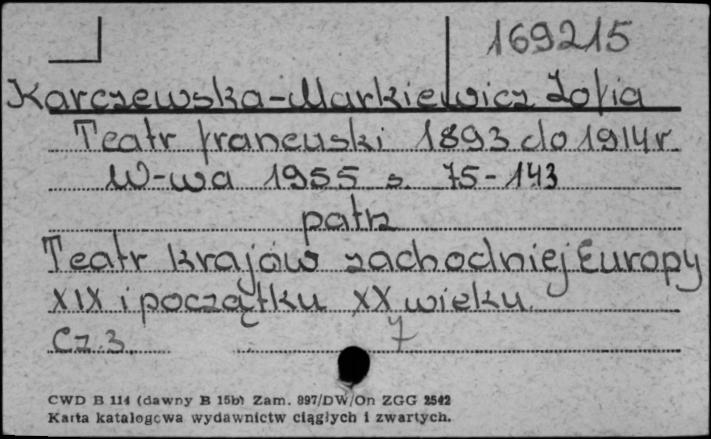 169215
Karczewska-Markiewicz Zofia
Teatr francuski 1893 do 1914 r.
W-wa 1955 s. 75-143
patrz
Teatr krajów zachodniej Europy
XIX i początku XX wieku
Cz. 3. 7
CWD B 114 (dawny B 15b) Zam. 897/DW/On ZGG 2542
Karta katalogowa wydawnictw ciągłych i zwartych.